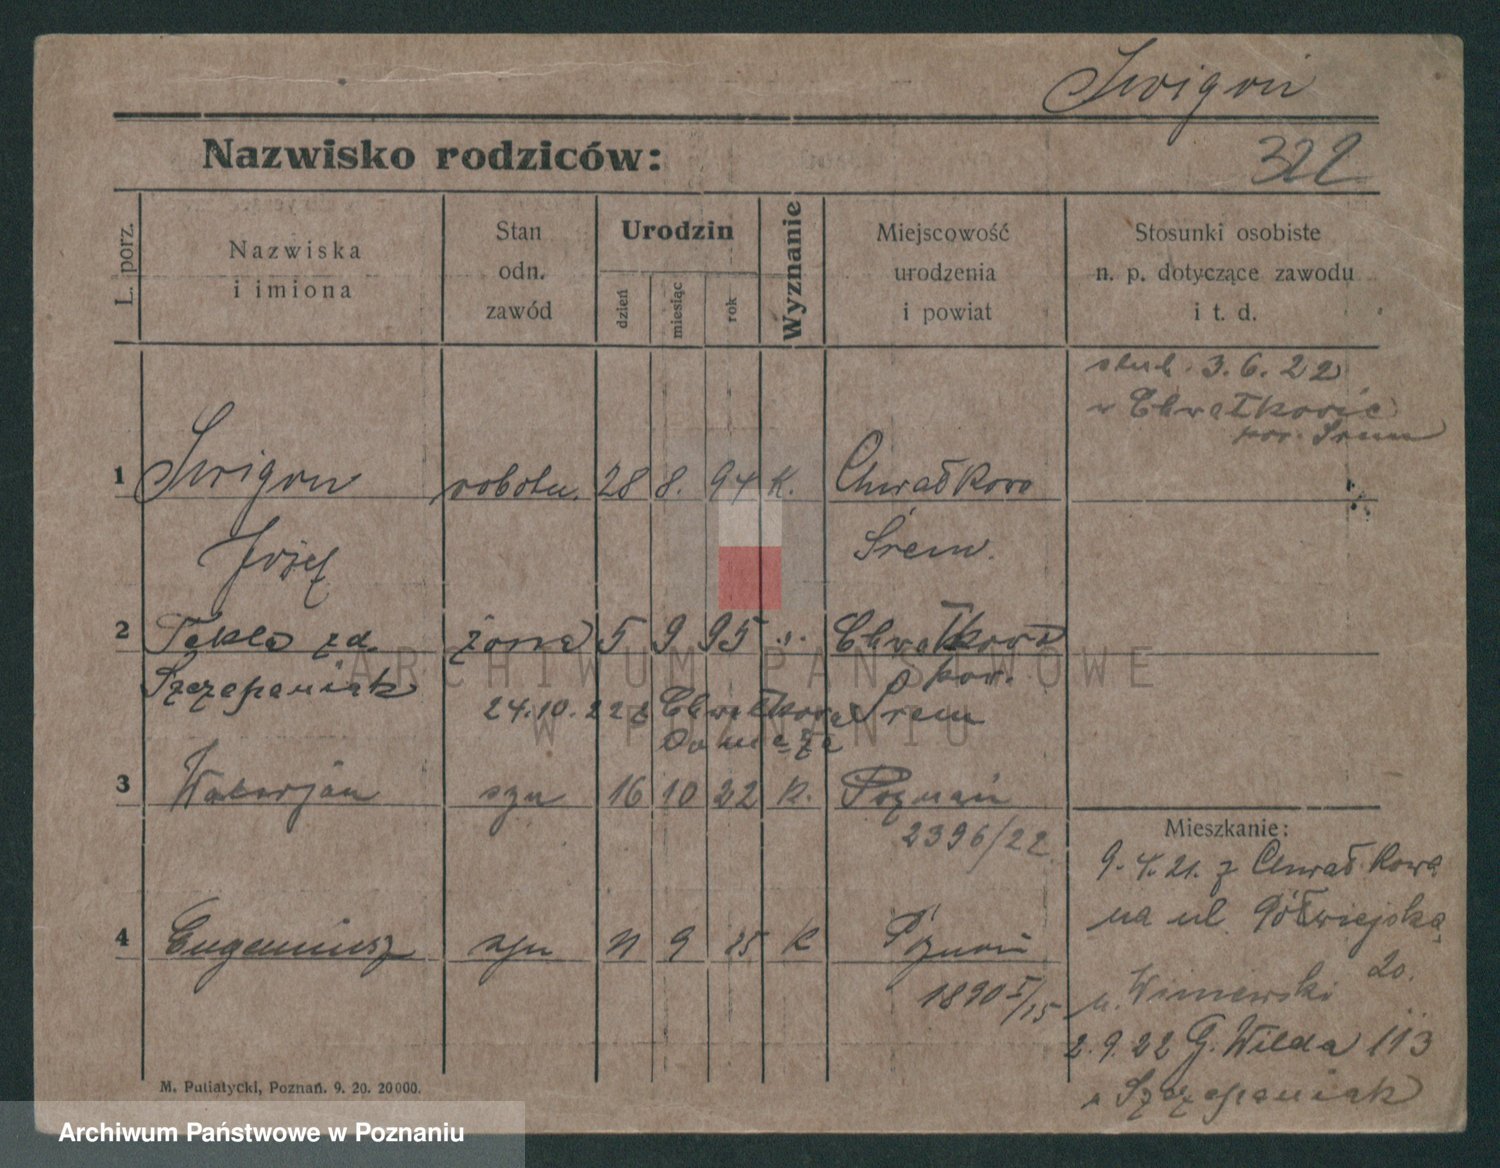 Swigoń
Nazwisko rodziców:
322
L. porz.
Nazwiska
i imiona
Stan
odn.
zawód
Urodzin
dzień
miesiąc
rok
Wyznanie
Miejscowość
urodzenia
i powiat
Stosunki osobiste
n. p. dotyczące zawodu
i t. d.
slub. 3.6.22
w Chwałkowie
pow. Srem
1 Swigon robotn. 28 8. 94 K. Chwałkowo
Józef Śrem.
2 Tekla zd. żona 5 9 95 „ Chwałkowo
Szczepaniak pow.
24.10.22 z Chwałkowa Srem
3 Walerjan syn 16 10 22 K. Poznań
2396/22
Mieszkanie:
9.4.21. z Chwałkowa
na ul. Półwiejska
20.
4 Eugeniusz syn 11 9 25 K Poznań
1890 I/25
u. Winiewski
2.9.22 G. Wilda 113
u Szczepaniak
M. Putiatycki, Poznań. 9. 20. 20000.
ARCHIWUM PAŃSTWOWE
W POZNANIU
Archiwum Państwowe w Poznaniu